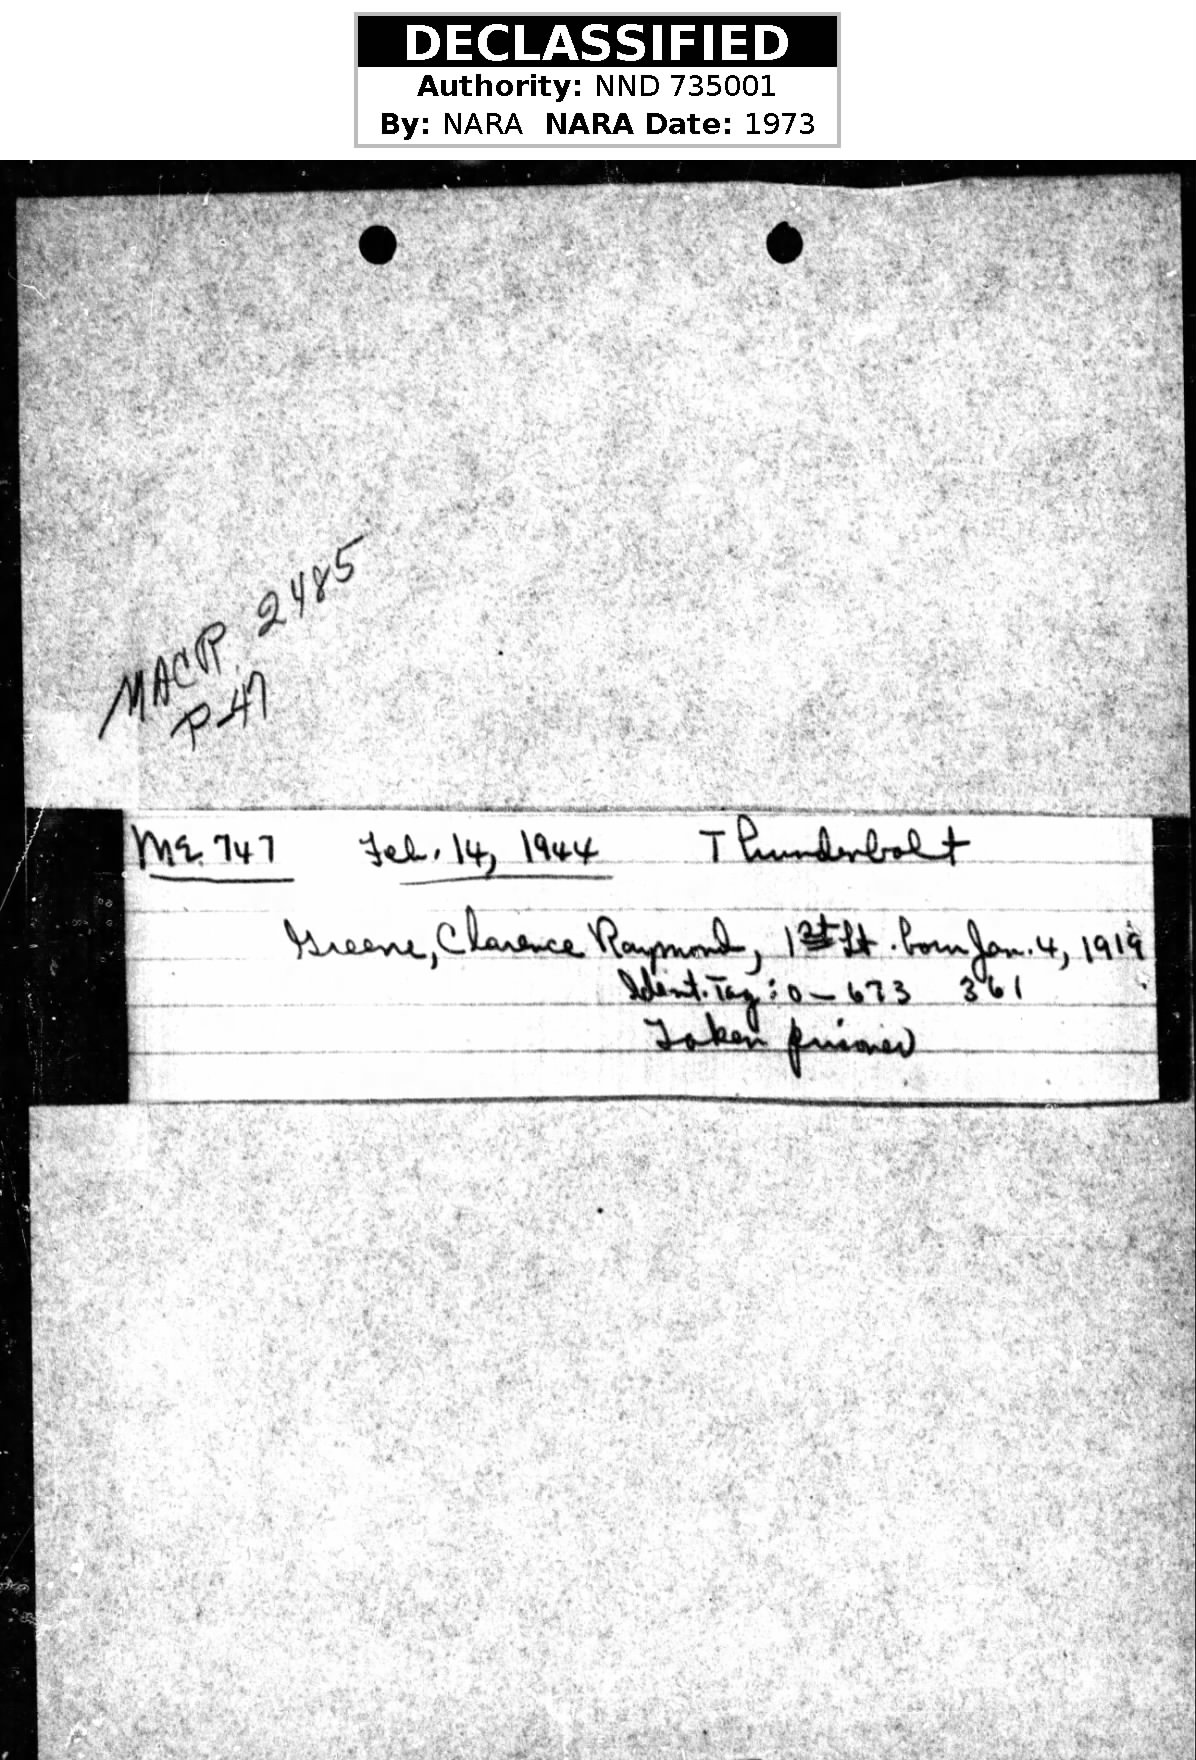 DECLASSIFIED
Authority: NND 735001
By: NARA NARA Date: 1973
MACR 2485
P-47
ME. 747 Feb. 14, 1944 Thunderbolt
Greene, Clarence Raymond, 1st Lt. born Jan. 4, 1919
Ident. Tag: O-673 361
Taken prisoner